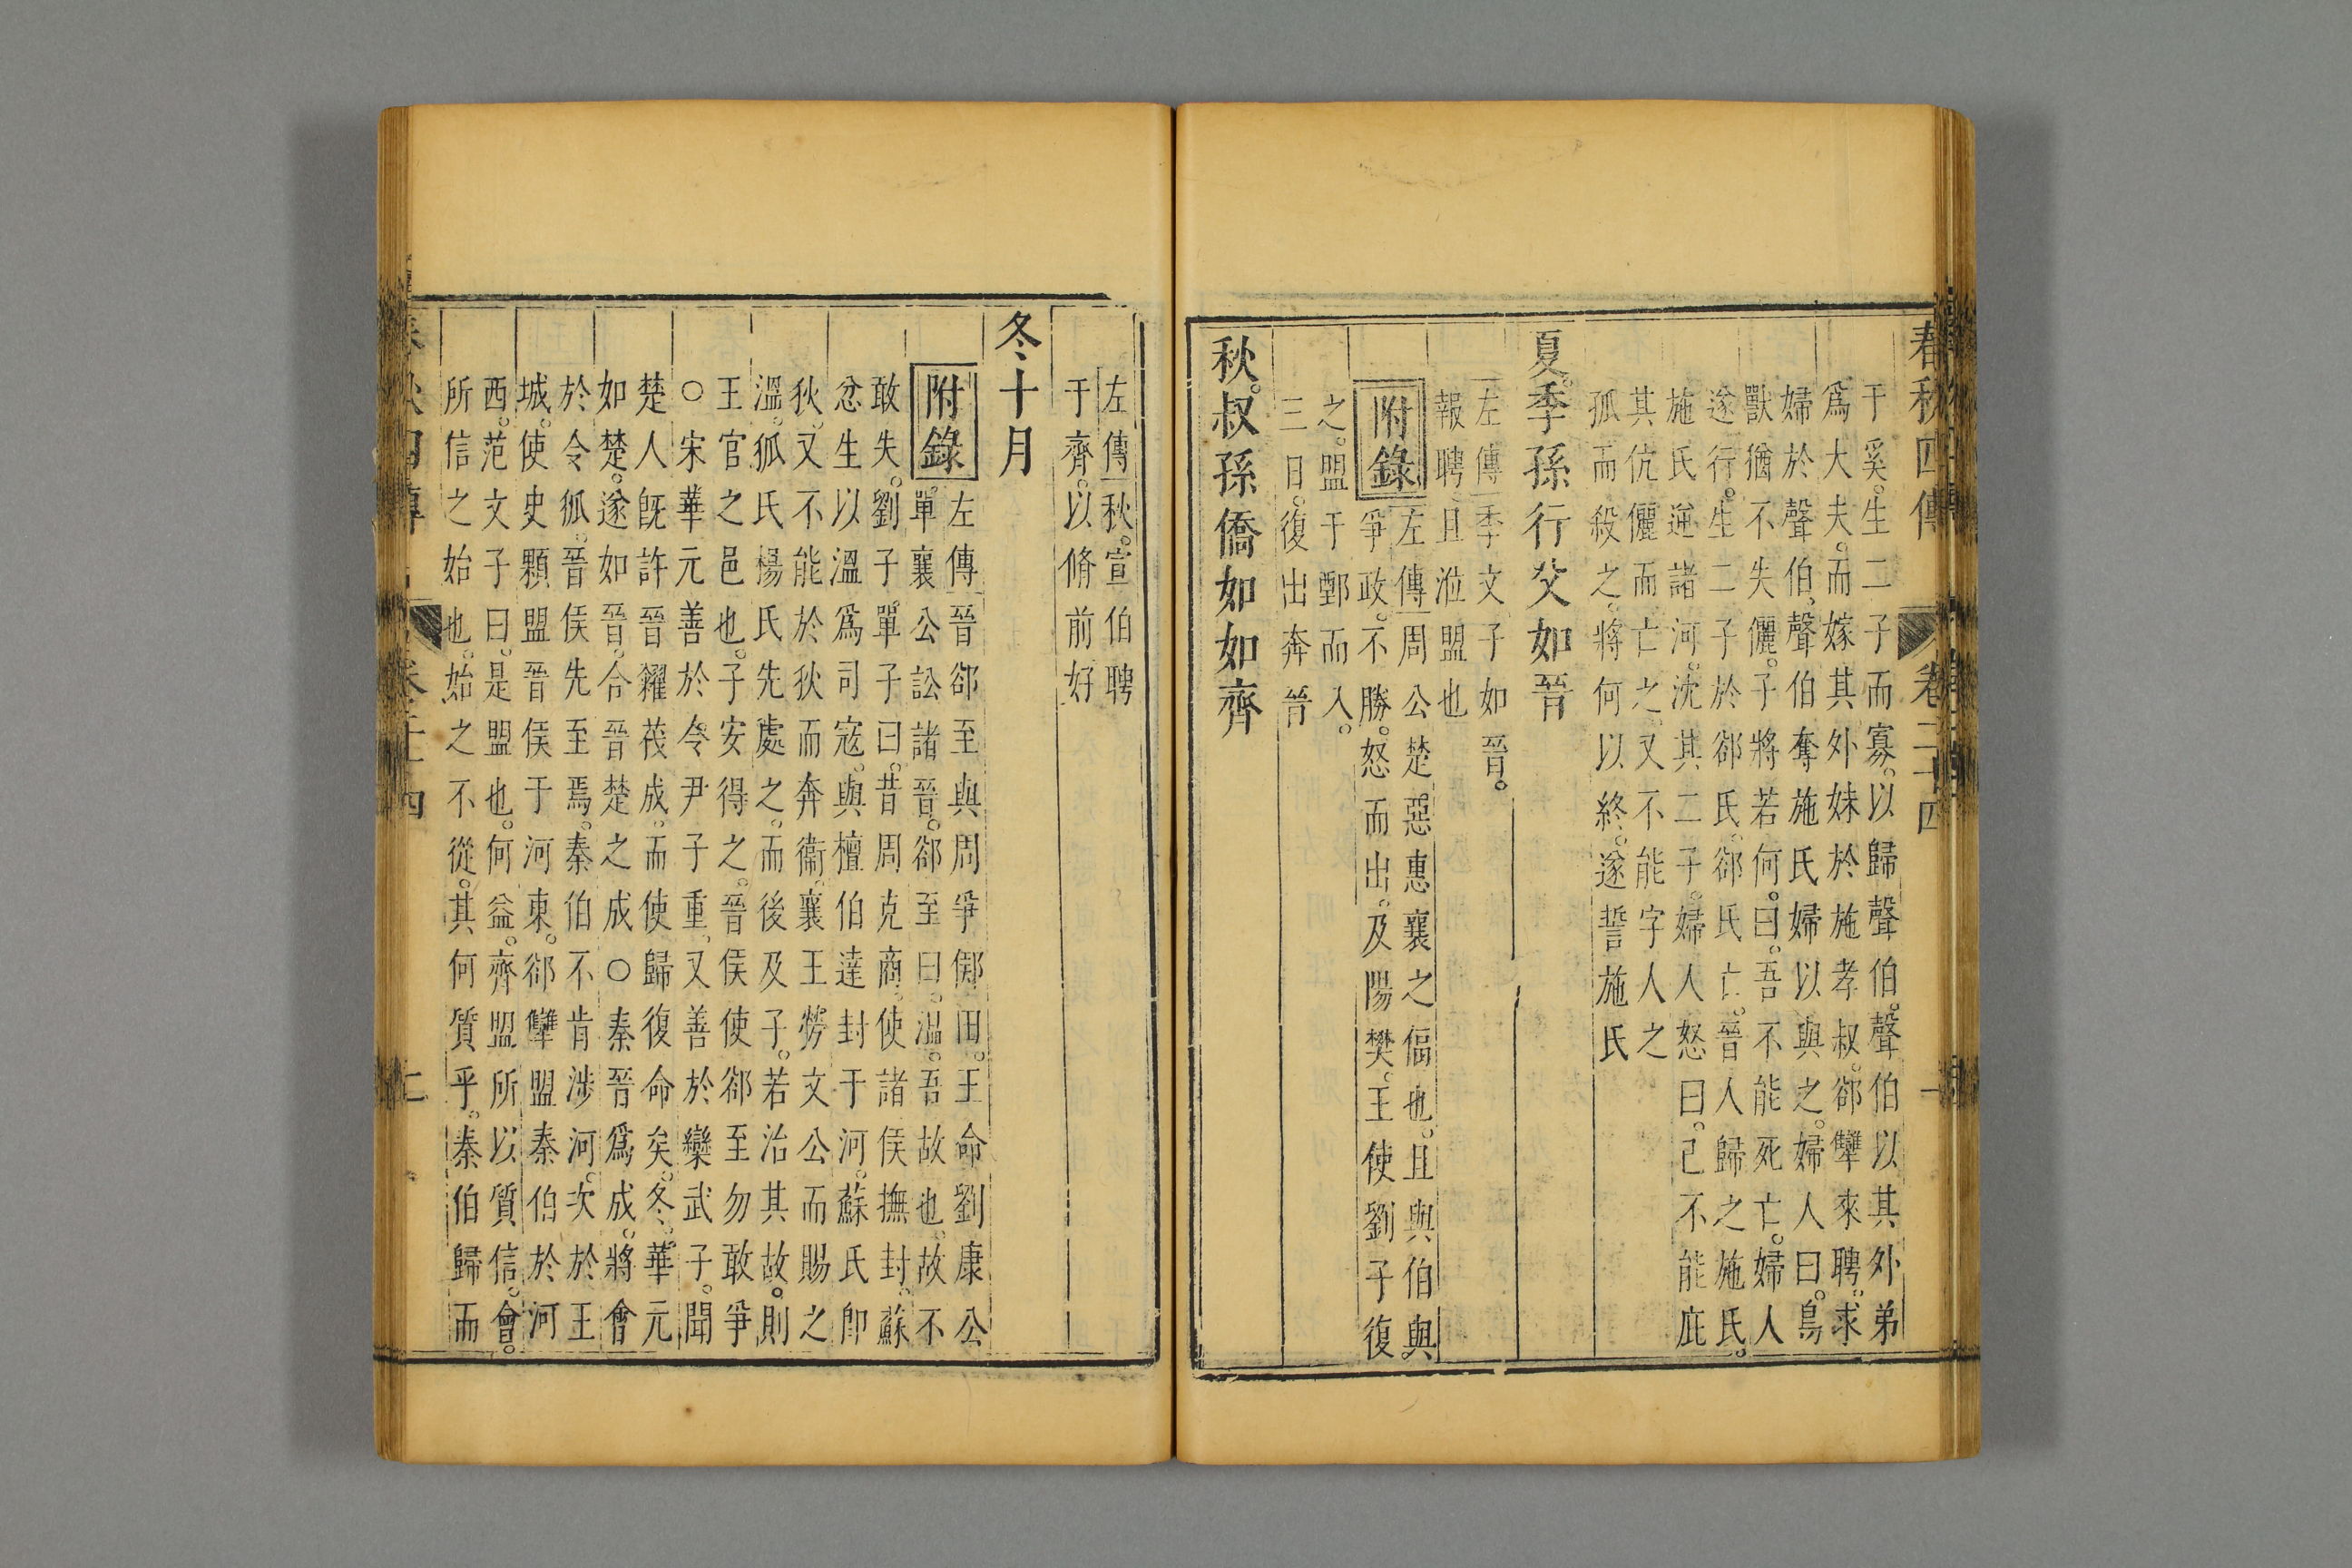 春秋四傳 卷二十四
于奚。生二子而寡。以歸聲伯。聲伯以其外弟
爲大夫。而嫁其外妹於施孝叔。郤犨來聘。求
婦於聲伯。聲伯奪施氏婦以與之。婦人曰。鳥
獸猶不失儷。子將若何。曰。吾不能死亡。婦人
遂行。生二子於郤氏。郤氏亡。晉人歸之施氏。
施氏逆諸河。沈其二子。婦人怒曰。己不能庇
其伉儷而亡之。又不能字人之
孤而殺之。將何以終。遂誓施氏
夏。季孫行父如晉
左傳季文子如晉。
報聘且涖盟也
附錄
左傳周公楚惡惠襄之偪也。且與伯與
爭政。不勝。怒而出。及陽樊。王使劉子復
之。盟于鄄而入。
三日。復出奔晉
秋。叔孫僑如如齊
左傳秋。宣伯聘
于齊。以脩前好
冬十月
附錄
左傳晉郤至與周爭鄇田。王命劉康公
單襄公訟諸晉。郤至曰。溫。吾故也。故不
敢失。劉子單子曰。昔周克商。使諸侯撫封。蘇
忿生以溫爲司寇。與檀伯達封于河。蘇氏卽
狄。又不能於狄而奔衞。襄王勞文公而賜之
溫。狐氏楊氏先處之。而後及子。若治其故。則
王官之邑也。子安得之。晉侯使郤至勿敢爭
○宋華元善於令尹子重。又善於欒武子。聞
楚人旣許晉糴茷成。而使歸復命矣。冬。華元
如楚。遂如晉。合晉楚之成○秦晉爲成。將會
於令狐。晉侯先至焉。秦伯不肯涉河。次於王
城。使史顆盟晉侯于河東。郤犨盟秦伯於河
西。范文子曰。是盟也。何益。齊盟所以質信。會。
所信之始也。始之不從。其何質乎。秦伯歸而